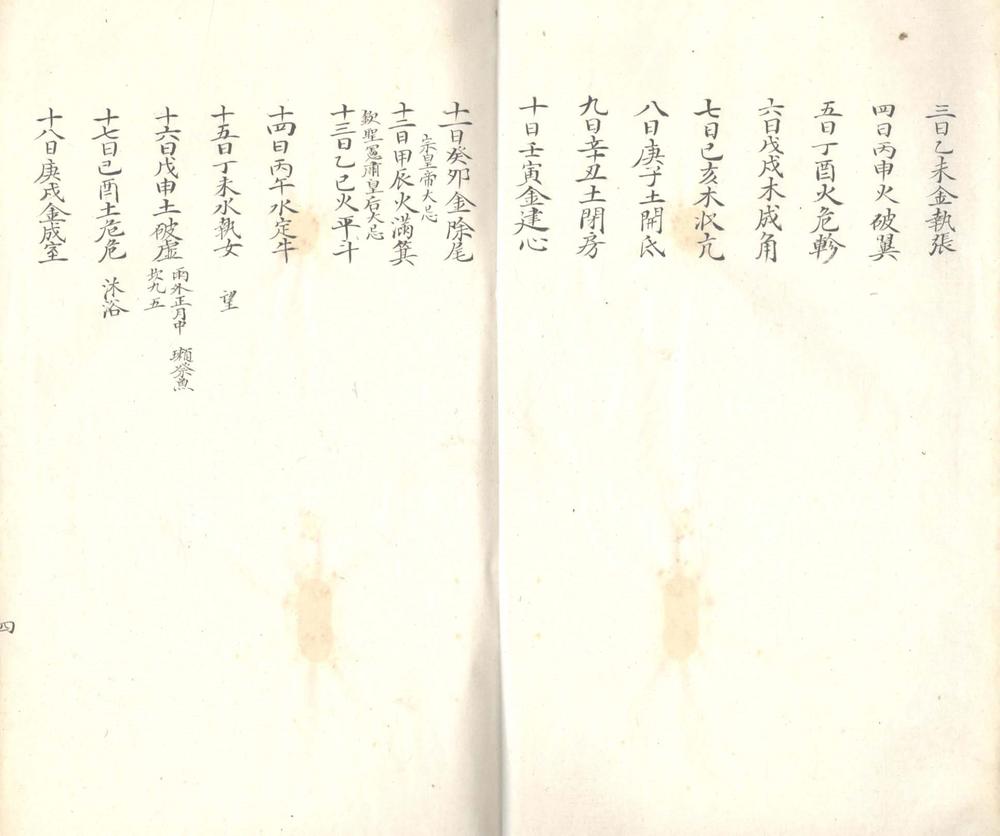 三日乙未金執張
四日丙申火破翼
五日丁酉火危軫
六日戊戌木成角
七日己亥木收亢
八日庚子土開氐
九日辛丑土閉房
十日壬寅金建心
十一日癸卯金除尾
宗皇帝大忌
十二日甲辰火滿箕
欽聖憲肅皇后大忌
十三日乙巳火平斗
十四日丙午水定牛
十五日丁未水執女 望
十六日戊申土破虛 雨水正月中 獺祭魚
坎九五
十七日己酉土危危 沐浴
十八日庚戌金成室
四